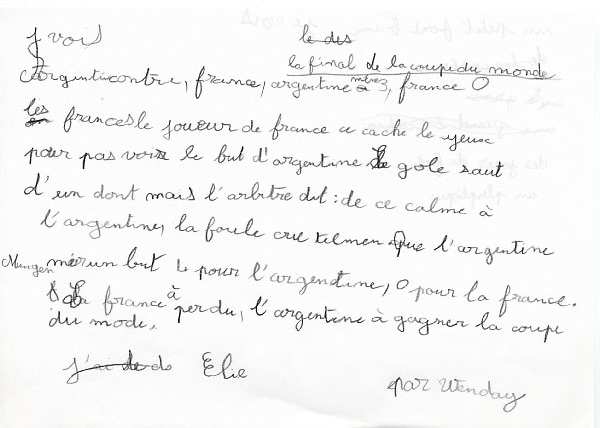 j vois le des
la final de la coupe du monde
d'argenticontre, france, argentine 3, france 0
les frances le joueur de france a cache le yeux
pour pas voir le but d'argentine Le gole saut
d'un dont mais l'arbitre dit : de ce calme à
l'argentine, la foule crie telmen que l'argentine
mer un but 4 pour l'argendtine, 0 pour la france.
la france à perdu, l'argentine à gagner la coupe
du mode.
j'ai de do Elie
par Wenday